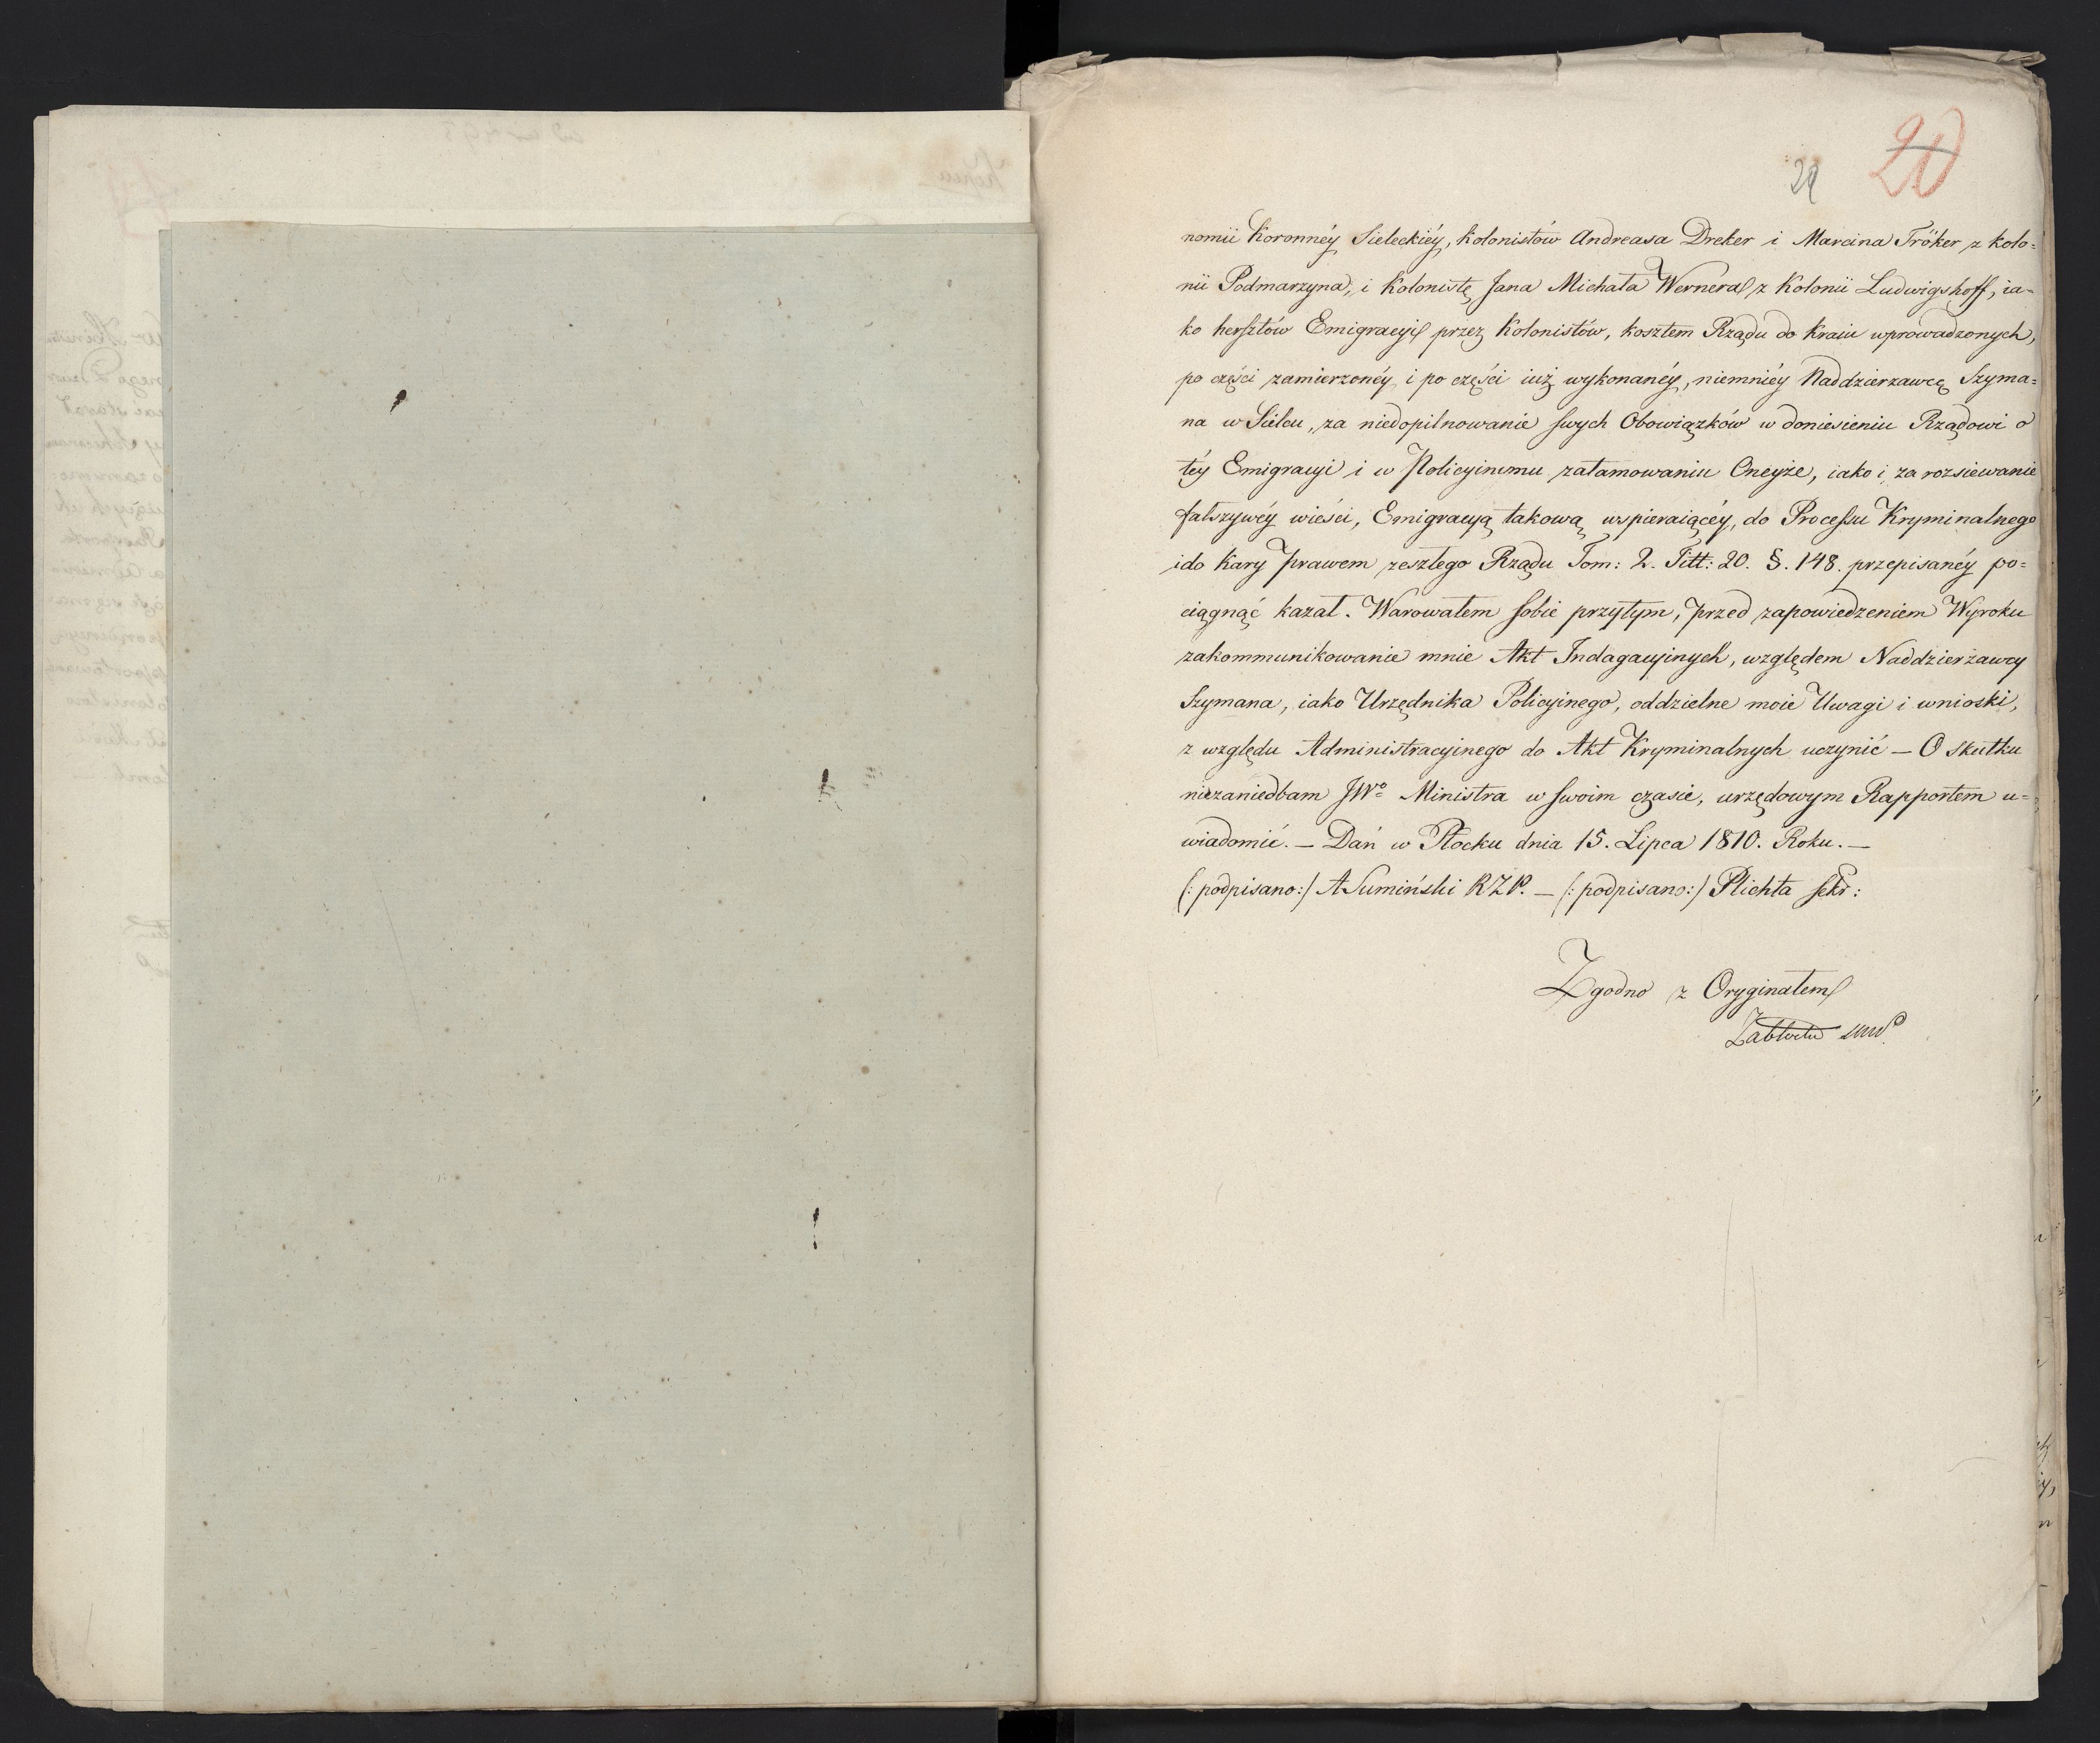 20
nomii Koronnéy Sieleckiéy, kolonistów Andreasa Dreker i Marcina Tröker z kolo=
nii Podmarzyna, i Kolonistę Jana Michała Wernera z Kolonii Ludwigshoff, ia=
ko hersztów Emigracyi przez Kolonistów, kosztem Rządu do Kraiu wprowadzonych,
po części zamierzonéy i po części iuż wykonanéy, niemniéy Naddzierzawcę Szyma=
na w Sielcu, za niedopilnowanie swych Obowiązków w doniesieniu Rządowi o
téy Emigracyi i w Policyinemu zatamowaniu Oneyże, iako i za rozsiewanie
fałszywéy wieści, Emigracyą takową wspieraiącéy, do Processu Kryminalnego
i do Kary prawem zeszłego Rządu Tom: 2. Titt: 20. §. 148. przepisanéy po=
ciągnąć kazał. Warowałem sobie przytym, przed zapowiedzeniem Wyroku
zakommunikowanie mnie Akt Indagacyinych, względem Naddzierżawcy
Szymana, iako Urzędnika Policyinego, oddzielne moie Uwagi i wnioski,
z względu Administracyinego do Akt Kryminalnych uczynić — O skutku
niezaniedbam JWo Ministra w swoim czasie, urzędowym Rapportem u=
wiadomić. — Dań w Płocku dnia 15. Lipca 1810. Roku. —
(: podpisano:) A Sumiński RZP. — (: podpisano:) Plichta sekr:
Zgodno z Oryginałem